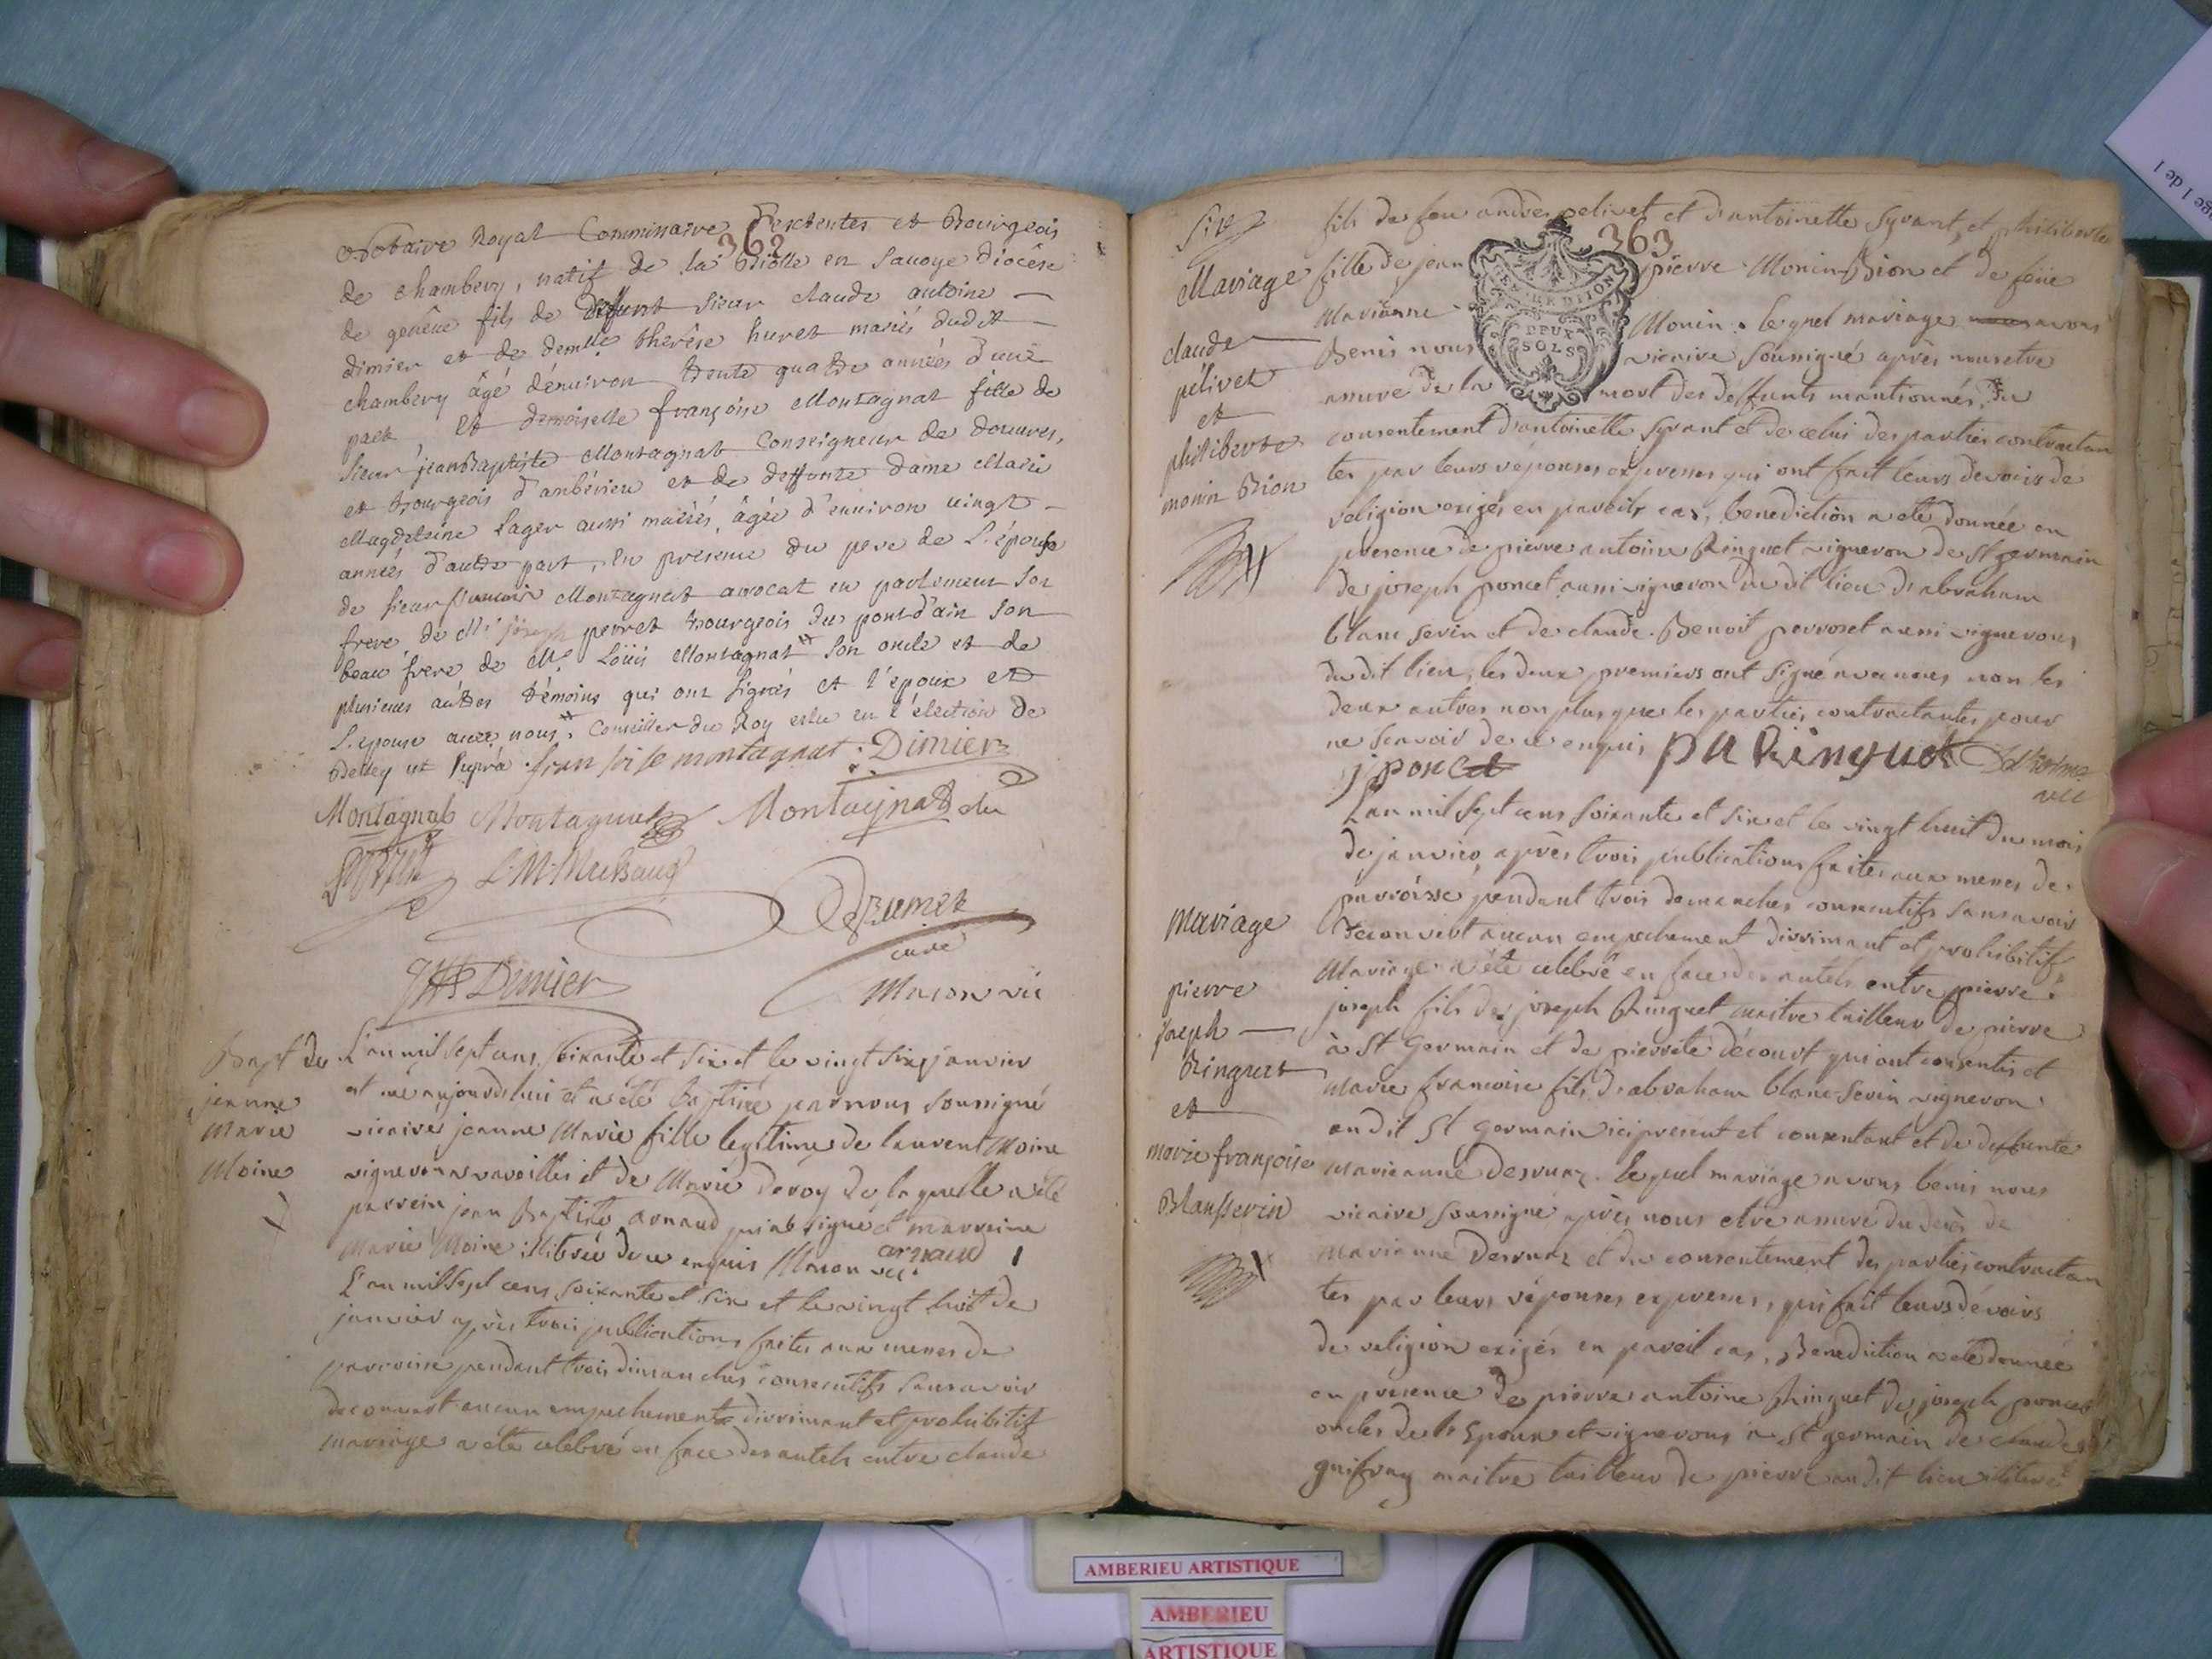 362
Notaire Royal Commissaire d'extentes et Bourgeois
de chambery, natif de la Biolle en Savoye diocèse
de genêve fils de deffunt sieur claude antoine
dimier et de demlle thérèse huret mariés dudit
chambery âgé dénviron trente quatre années d'une
part, et demoiselle françoise Montagnat fille de
sieur jean Baptiste Montagnat Conseigneur de douvres,
et bourgeois d'ambérieu et de deffunte dame Marie
Magdeleine Lager aussi mariés, âgée d'environ vingt
années d'autre part, en présence du pere de L'épouse
de sieur françois Montagnat avocat en parlement son
frere, de Mr joseph perret bourgeois du pont d'ain son
beau frere de Me Loüis Montagnat son oncle et de
plusieurs autres témoins qui ont signés et l'époux et
L'epouse avec nous. Conseiller du Roy eslu en l'élection de
Belley ut supra. fransoise montagnat. Dimier
Montagnat Montagnat Montagnat élu
Perret L. M. Mechaud
curé
Dimier
Macon vic
Bapt de
jeanne
Marie
Moine
L'an mil sept cens soixante et six et le vingt six janvier
est née aujourdhui et a été baptisée par nous soussigné
vicaire jeanne Marie fille legitime de laurent Moine
vigneron a vareilles et de Marie deroy de laquelle a été
parrein jean Baptiste arnaud qui a signé et marreine
Marie Moine illitrée de ce enquis Macon vic. arnaud
L'an mil sept cens soixante et six et le vingt huit de
janvier après trois publications faites aux messes de
parroisse pendant trois dimanches consecutifs sans avoir
decouvert aucun empechement dirrimant et prohibitif
mariage a été celebré en face des autels entre claude
363
GEN
DEUX
SOLS
Mariage
claude
pélivet
et
philiberte
monin Bion
fils de feu andré pelivet et d'antoinette Syvant, et philiberte
fille de jean pierre Monin Bion et de feüe
Marianne Monin. lequel mariage avons
Benis nous vicaire soussigné après nous etre
assuré de la mort des deffunts mentionnés, du
consentement d'antoinette Syvant et de celui des parties contractan
tes par leurs réponses expresses qui ont fait leurs devoirs de
religion exigés en pareils cas, benediction a été donnée en
presence de pierre antoine Ringuet vigneron de St germain
de joseph poncet aussi vigneron du dit lieu d'abraham
blanc Sevin et de claude Benoit perroset aussi vignerons
du dit lieu, les deux premiers ont signé avec nous non les
deux autres non plus que les parties contractantes pour
ne scavoir de ce enquis pa Ringuet
j poncet
vic
Mariage
pierre
joseph
Ringuet
et
marie françoise
Blansevin
L'an mil sept cens soixante et six et le vingt huit du mois
de janvier, après trois publications faites aux messes de
parroisse pendant trois dimanches consecutifs sans avoir
decouvert aucun empechement dirrimant et prohibitif,
Mariage a été celebré en face des autels entre pierre
joseph fils de joseph Ringuet maitre tailleur de pierre
à St Germain et de pierrete décourt qui ont consentis et
Marie francoise fils d'abraham blanc-Sevin vigneron
au dit St Germain ici présent et consentant et de deffunte
Marieanne Desruaz. lequel mariage avons bénis nous
vicaire soussigné après nous etre assuré du decès de
Marianne Desruaz et du consentement des parties contractan
tes par leurs réponses expresses, qui fait leurs dévoirs
de religion exigés en pareil cas, Benediction a été donnée
en presence de pierre antoine Ringuet de joseph poncet
oncles de lh Epoux et vignerons à St germain de claude
guifray maitre tailleur de pierre au dit lieu illitere
AMBERIEU ARTISTIQUE
AMBERIEU
ARTISTIQUE